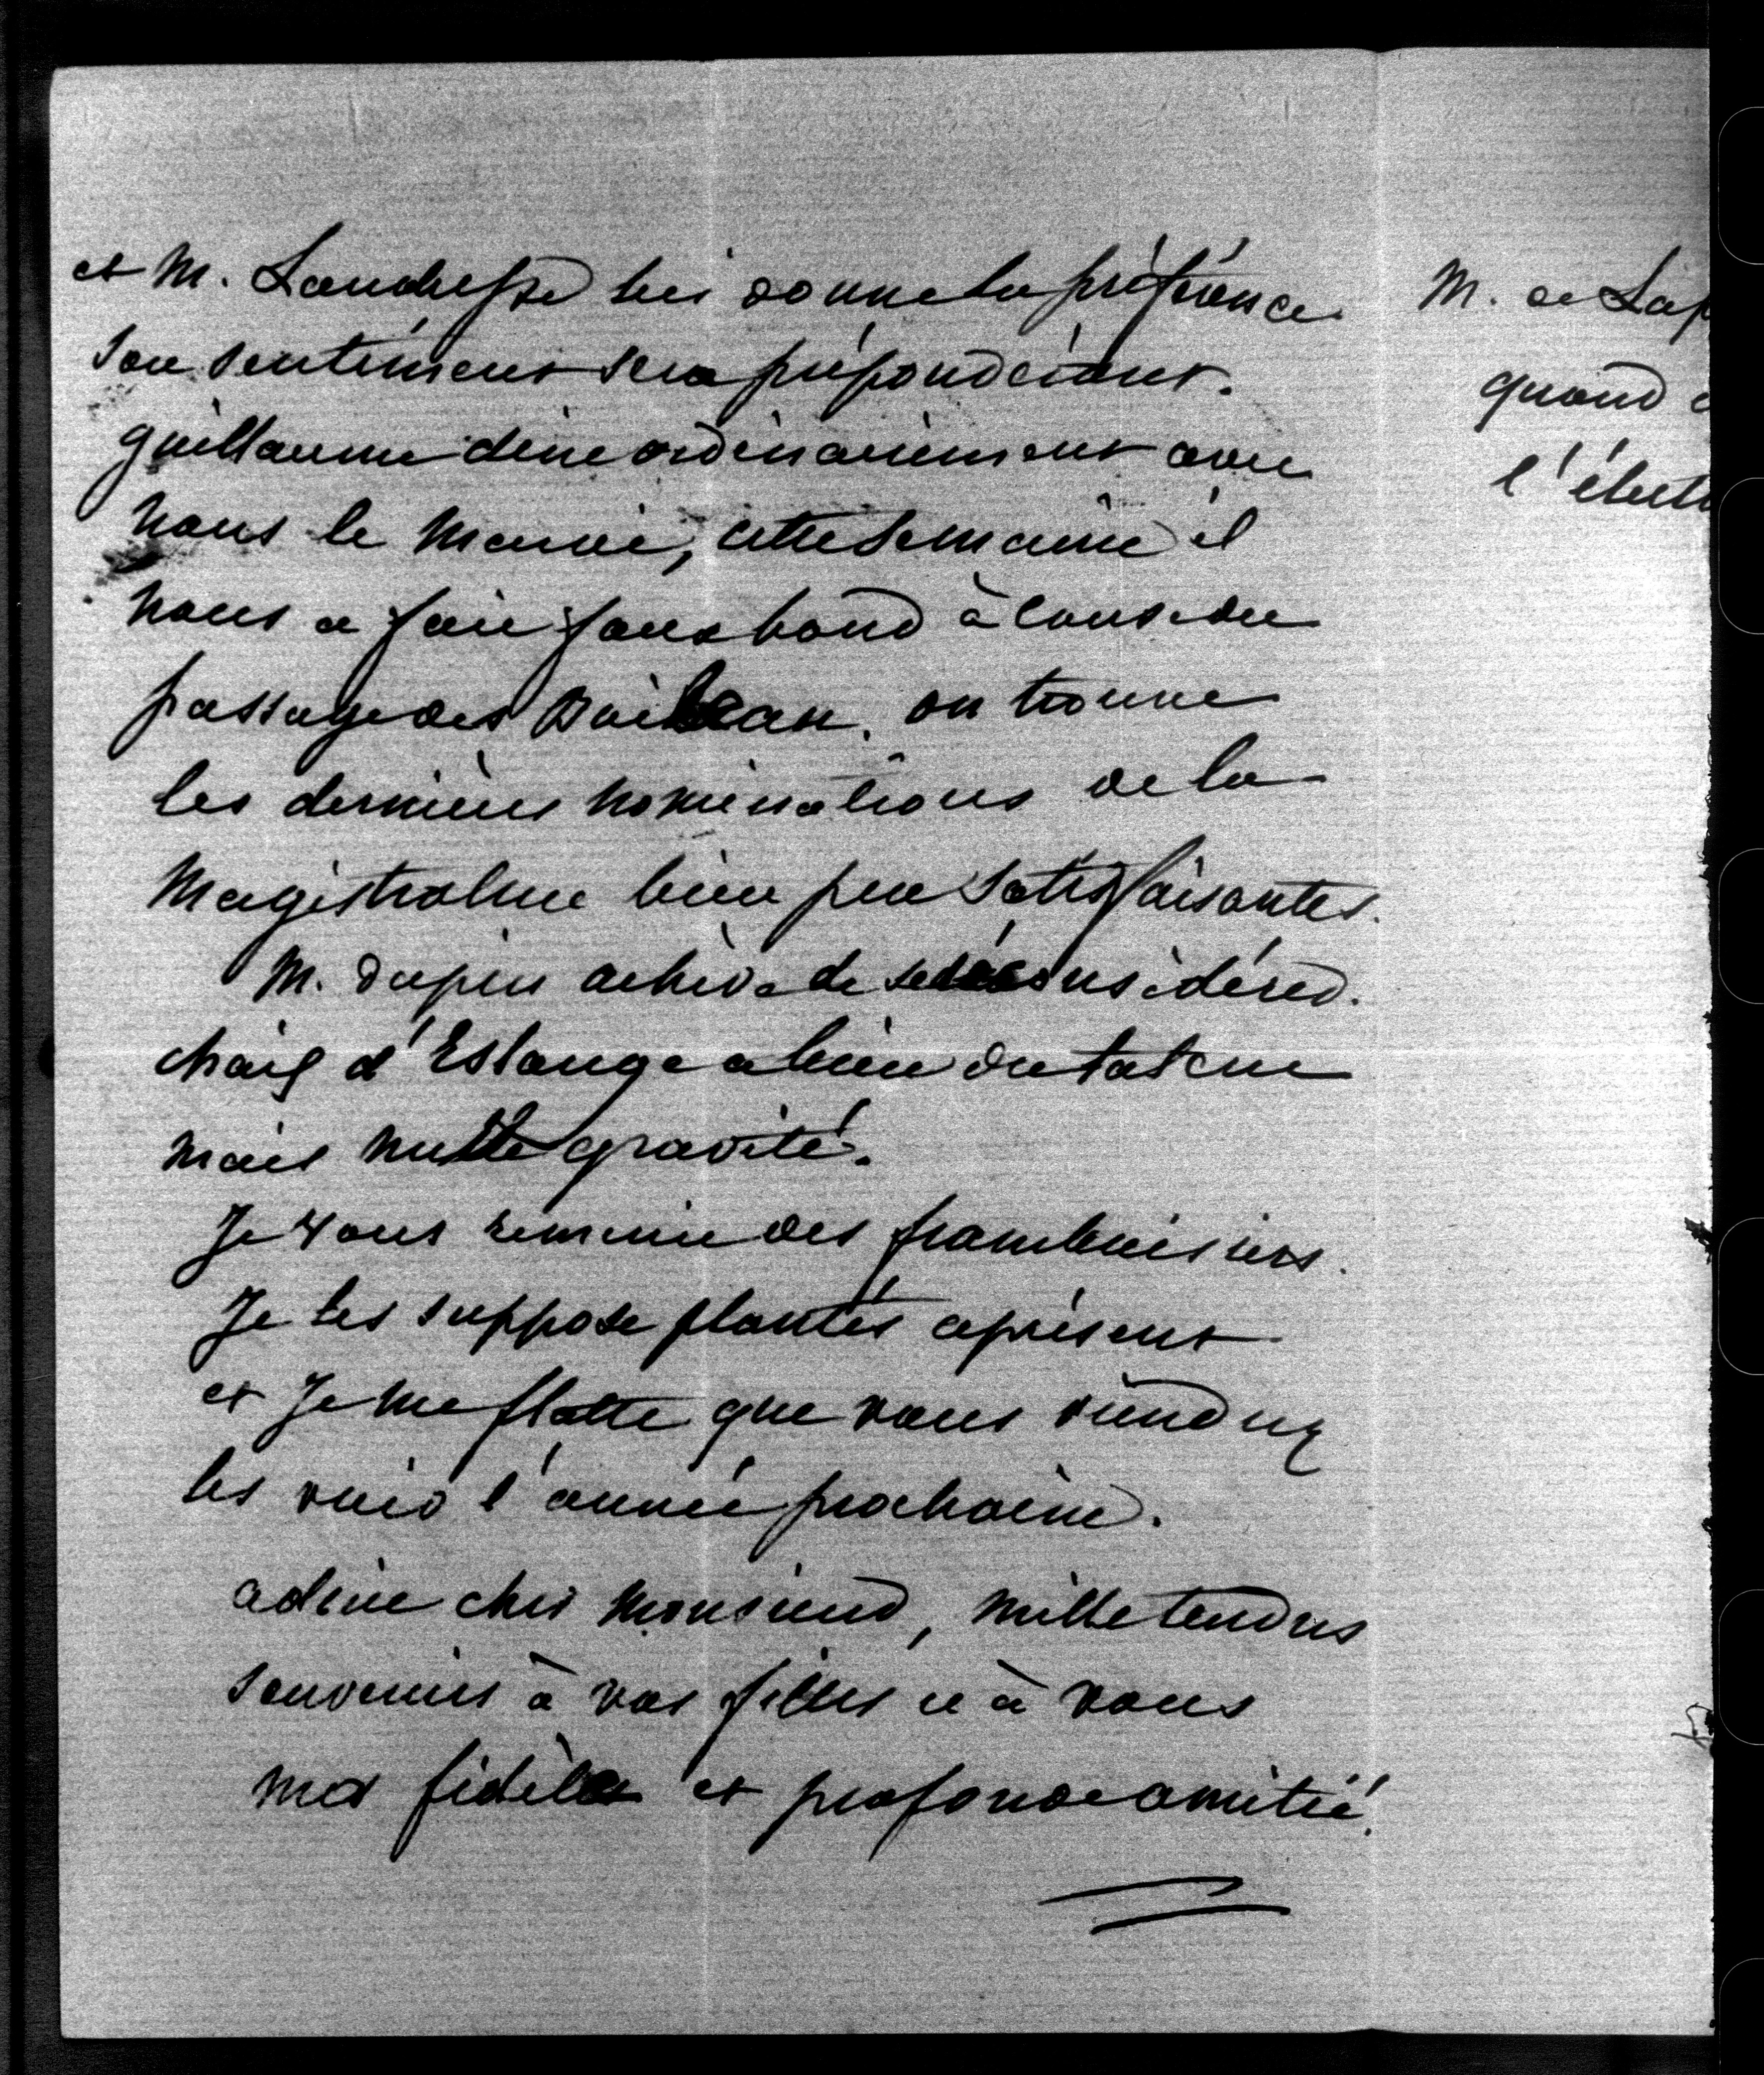 et M. Landresse lui donne la préférence
son sentiment sera prépondérant.
guillaume dine ordinairement avec
nous le mercredi, cette semaine il
nous a fait faux bond à cause du
passage des Boileau. on trouve
les dernières nominations de la
Magistrature bien peu satisfaisantes.
M. Dupin achève de se déconsidérer.
chaix d'Estange a bien du talent
mais nulle gravité.
Je vous remercie des framboisiers.
Je les suppose plantés àprésent
et Je me flatte que vous viendrez
les voir l'année prochaine.
adieu cher Monsieur, mille tendres
souvenirs à vos filles et à vous
ma fidèle et profonde amitié.
M. de
quand